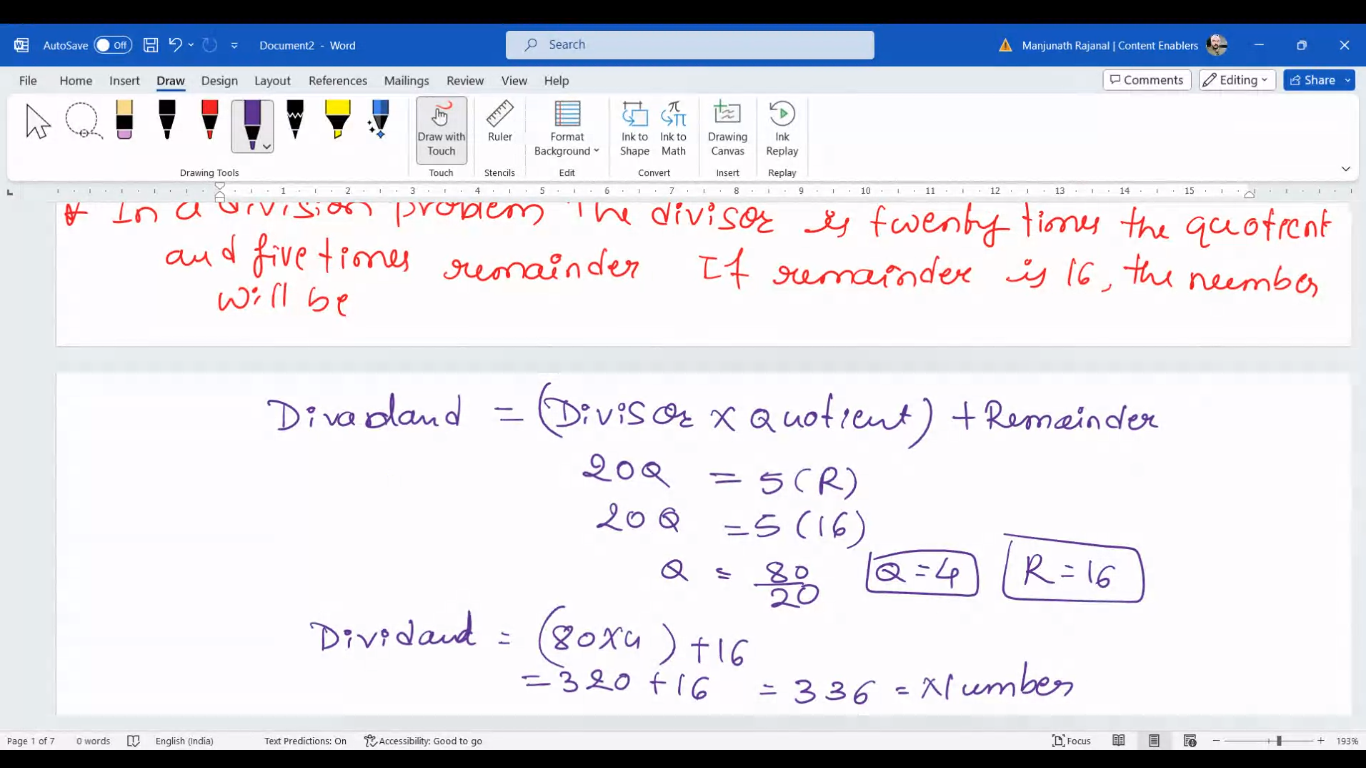 AutoSave Off Document2 - Word Search Manjunath Rajanal | Content Enablers
File Home Insert Draw Design Layout References Mailings Review View Help Comments Editing Share
Draw with Touch Ruler Format Background Ink to Shape Ink to Math Drawing Canvas Ink Replay
Drawing Tools Touch Stencils Edit Convert Insert Replay
1 2 3 4 5 6 7 8 9 10 11 12 13 14 15
* In a division problem The divisor is twenty times the quotient
and five times remainder If remainder is 16, the neember
will be
Divadand = (Divisor X Quotient) + Remainder
20Q = 5(R)
20Q = 5(16)
Q = 80/20 Q = 4 R = 16
Dividand = (80X4) + 16
= 320 + 16 = 336 = Number
Page 1 of 7 0 words English (India) Text Predictions: On Accessibility: Good to go Focus 193%